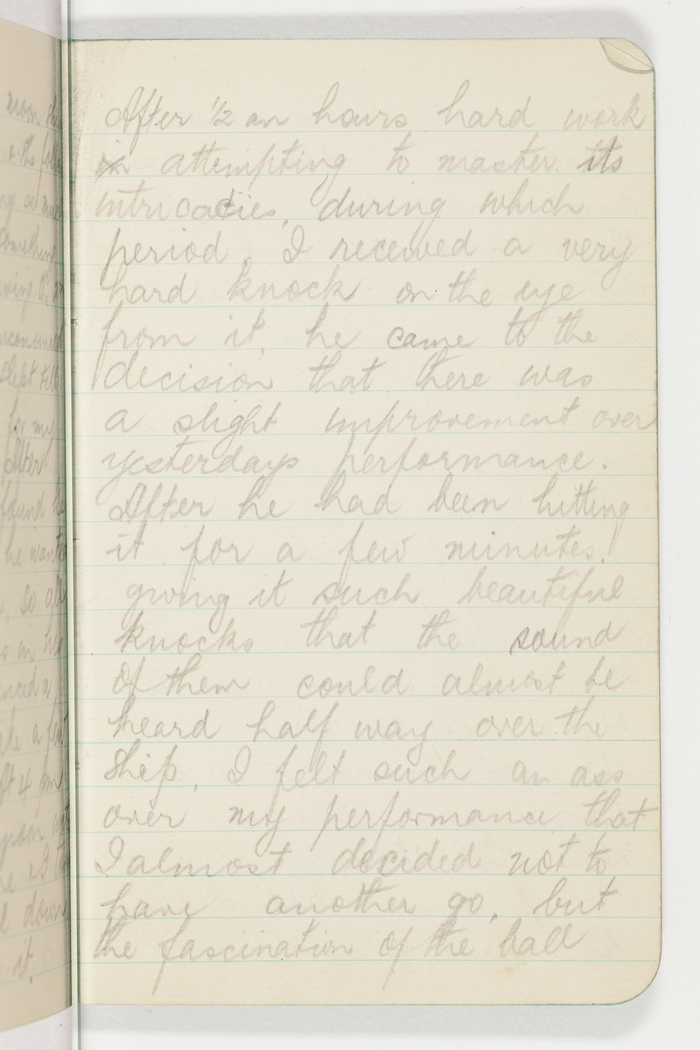 After ½ an hours hard work
in attempting to master its
intricacies, during which
period, I received a very
hard knock on the eye
from it, he came to the
decision that there was
a slight improvement over
yesterdays performance.
After he had been hitting
it for a few minutes,
giving it such beautiful
knocks that the sound
of them could almost be
heard half way over the
ship, I felt such an ass
over my performance that
I almost decided not to
have another go, but
the fascination of the ball